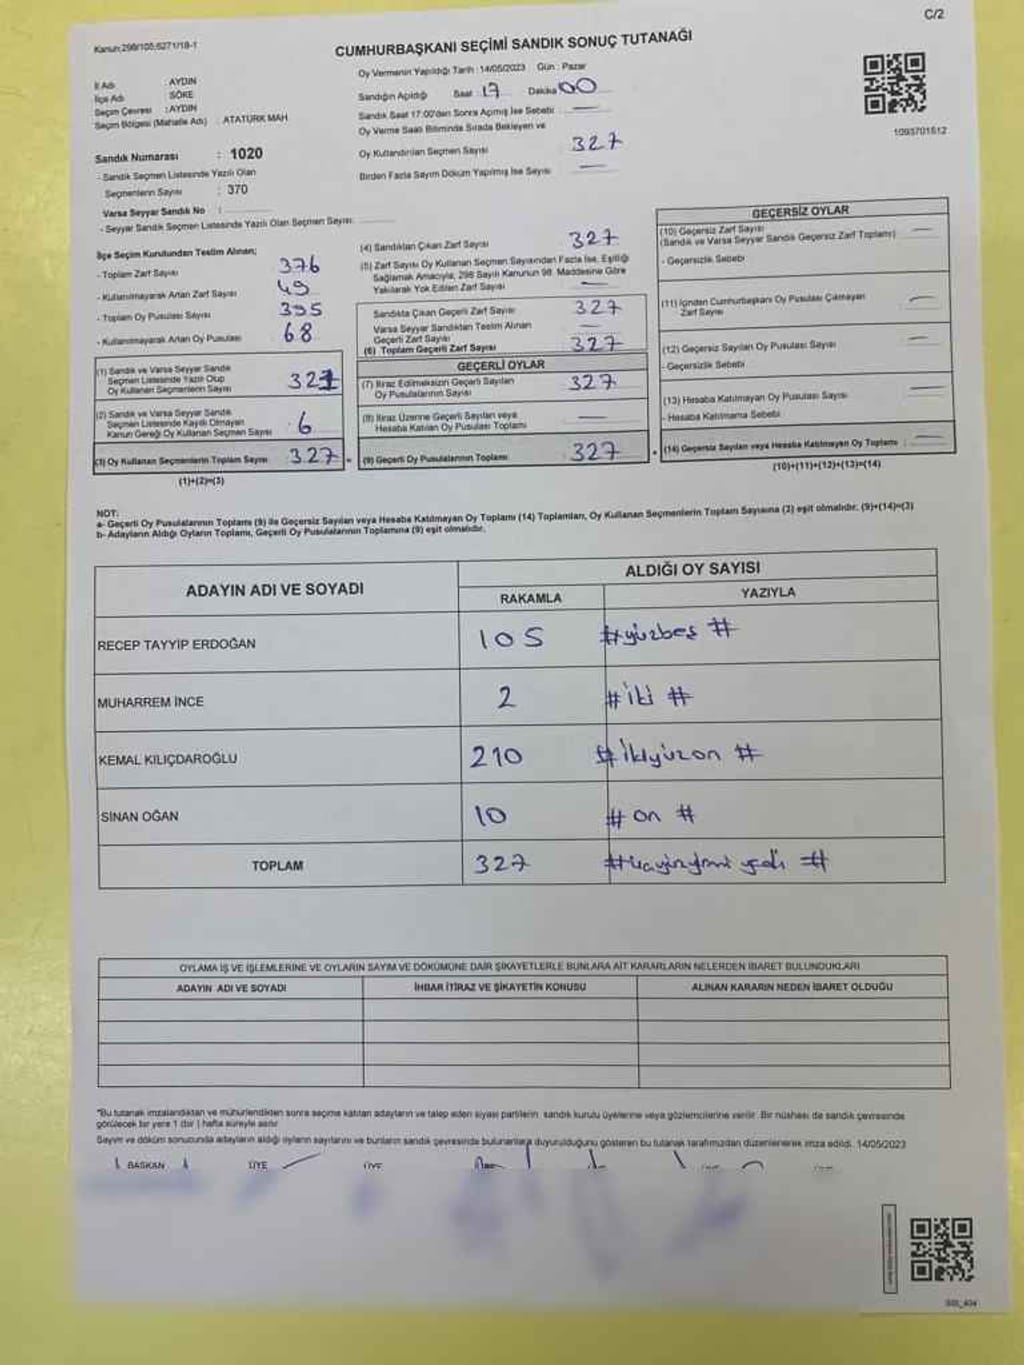 C/2
Kanun:298/105;6271/18-1
CUMHURBAŞKANI SEÇİMİ SANDIK SONUÇ TUTANAĞI
İl Adı : AYDIN
İlçe Adı : SÖKE
Seçim Çevresi : AYDIN
Seçim Bölgesi (Mahalle Adı) : ATATÜRK MAH.
Sandık Numarası : 1020
- Sandık Seçmen Listesinde Yazılı Olan
Seçmenlerin Sayısı : 370
Varsa Seyyar Sandık No :
- Seyyar Sandık Seçmen Listesinde Yazılı Olan Seçmen Sayısı:
Oy Vermenin Yapıldığı Tarih :14/05/2023 Gün : Pazar
Sandığın Açıldığı Saat : 17 Dakika 00
Sandık Saat 17:00'den Sonra Açmış İse Sebebi : —
Oy Verme Saati Bitiminde Sırada Bekleyen ve
Oy Kullandırılan Seçmen Sayısı 327
Birden Fazla Sayım Döküm Yapılmış İse Sayısı —
1093701512
İlçe Seçim Kurulundan Teslim Alınan;
- Toplam Zarf Sayısı 376
- Kullanılmayarak Artan Zarf Sayısı 49
- Toplam Oy Pusulası Sayısı 395
- Kullanılmayarak Artan Oy Pusulası 68
(1) Sandık ve Varsa Seyyar Sandık
Seçmen Listesinde Yazılı Olup
Oy Kullanan Seçmenlerin Sayısı 321
(2) Sandık ve Varsa Seyyar Sandık
Seçmen Listesinde Kayıtlı Olmayan
Kanun Gereği Oy Kullanan Seçmen Sayısı 6
(3) Oy Kullanan Seçmenlerin Toplam Sayısı 327
(1)+(2)=(3)
(4) Sandıktan Çıkan Zarf Sayısı 327
(5) Zarf Sayısı Oy Kullanan Seçmen Sayısından Fazla İse, Eşitliği
Sağlamak Amacıyla, 298 Sayılı Kanunun 98. Maddesine Göre
Yakılarak Yok Edilen Zarf Sayısı —
Sandıkta Çıkan Geçerli Zarf Sayısı 327
Varsa Seyyar Sandıktan Teslim Alınan
Geçerli Zarf Sayısı —
(6) Toplam Geçerli Zarf Sayısı 327
GEÇERLİ OYLAR
(7) İtiraz Edilmeksizin Geçerli Sayılan
Oy Pusulalarının Sayısı 327
(8) İtiraz Üzerine Geçerli Sayılan veya
Hesaba Katılan Oy Pusulası Toplamı —
(9) Geçerli Oy Pusulalarının Toplamı 327
GEÇERSİZ OYLAR
(10) Geçersiz Zarf Sayısı
(Sandık ve Varsa Seyyar Sandık Geçersiz Zarf Toplamı) —
- Geçersizlik Sebebi
(11) İçinden Cumhurbaşkanı Oy Pusulası Çıkmayan
Zarf Sayısı —
(12) Geçersiz Sayılan Oy Pusulası Sayısı —
- Geçersizlik Sebebi
(13) Hesaba Katılmayan Oy Pusulası Sayısı —
- Hesaba Katılmama Sebebi
(14) Geçersiz Sayılan veya Hesaba Katılmayan Oy Toplamı : —
(10)+(11)+(12)+(13)=(14)
NOT:
a- Geçerli Oy Pusulalarının Toplamı (9) ile Geçersiz Sayılan veya Hesaba Katılmayan Oy Toplamı (14) Toplamları, Oy Kullanan Seçmenlerin Toplam Sayısına (3) eşit olmalıdır. (9)+(14)=(3)
b- Adayların Aldığı Oyların Toplamı, Geçerli Oy Pusulalarının Toplamına (9) eşit olmalıdır.
ADAYIN ADI VE SOYADI ALDIĞI OY SAYISI
RAKAMLA YAZIYLA
RECEP TAYYİP ERDOĞAN 105 #yüzbeş #
MUHARREM İNCE 2 #iki #
KEMAL KILIÇDAROĞLU 210 #ikiyüzon #
SİNAN OĞAN 10 # on #
TOPLAM 327
OYLAMA İŞ VE İŞLEMLERİNE VE OYLARIN SAYIM VE DÖKÜMÜNE DAİR ŞİKAYETLERLE BUNLARA AİT KARARLARIN NELERDEN İBARET BULUNDUKLARI
ADAYIN ADI VE SOYADI İHBAR İTİRAZ VE ŞİKAYETİN KONUSU ALINAN KARARIN NEDEN İBARET OLDUĞU
*Bu tutanak imzalandıktan ve mühürlendikten sonra seçime katılan adayların ve talep eden siyasi partilerin, sandık kurulu üyelerine veya gözlemcilerine verilir. Bir nüshası da sandık çevresinde
görülecek bir yere 1 (bir) hafta süreyle asılır.
Sayım ve döküm sonucunda adayların aldığı oyların sayılarını ve bunların sandık çevresinde bulunanlara duyurulduğunu gösteren bu tutanak tarafımızdan düzenlenerek imza edildi. 14/05/2023
BAŞKAN ÜYE ÜYE